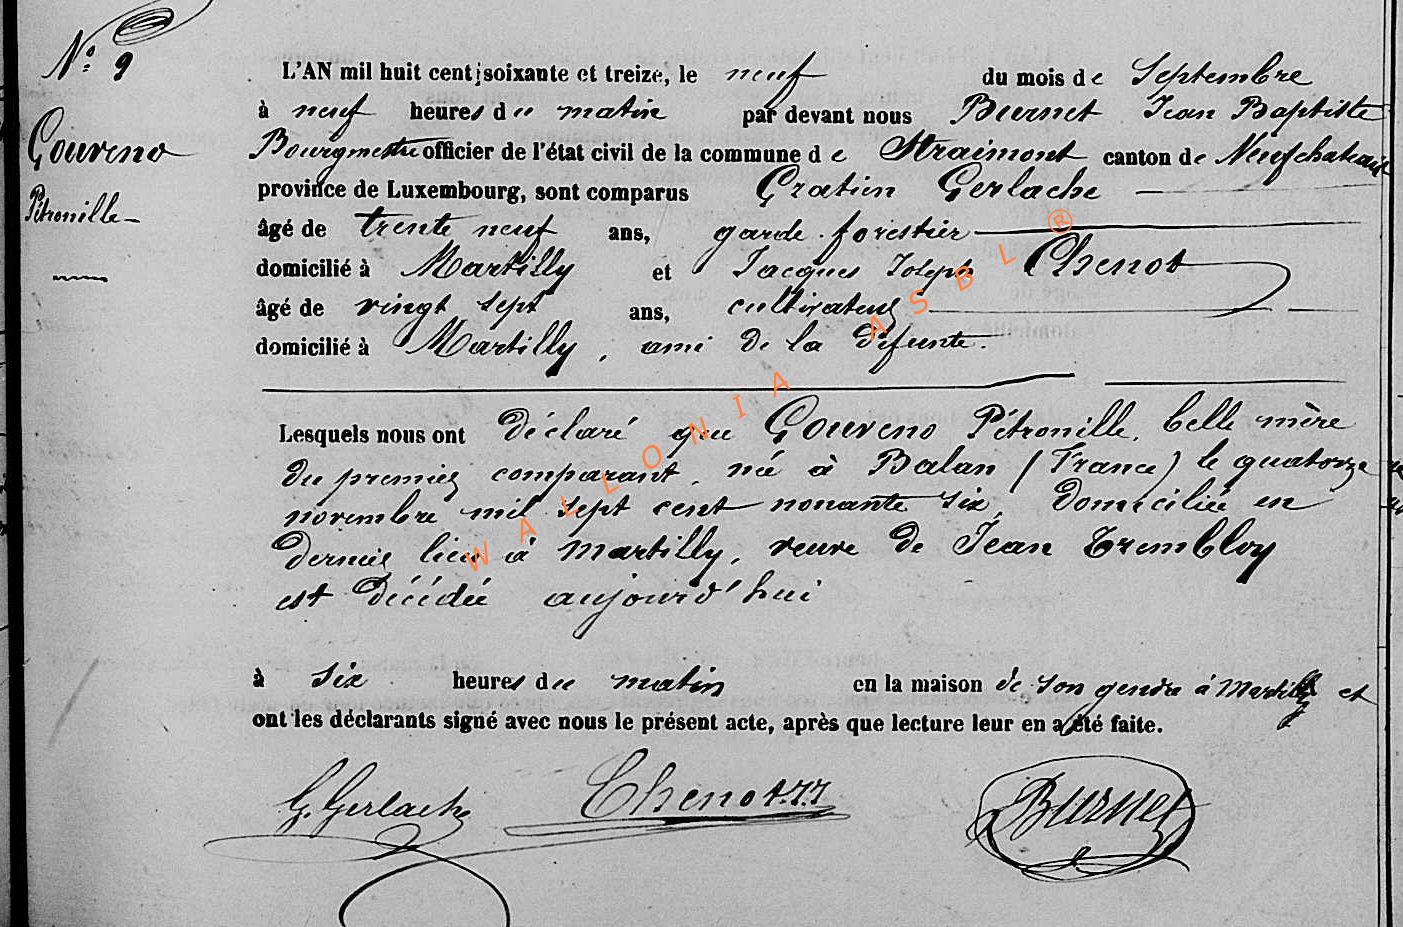 N° 9
Gouveno
Pétronille
L'AN mil huit cent soixante et treize, le neuf du mois de Septembre
à neuf heures du matin par devant nous Burnet Jean Baptiste
Bourgmestre officier de l'état civil de la commune de Straimont canton de Neufchateau
province de Luxembourg, sont comparus Gratien Gerlache
âgé de trente neuf ans, garde forestier
domicilié à Martilly et Jacques Joseph Chenot
âgé de vingt sept ans, cultivateur
domicilié à Martilly, ami de la défunte.
Lesquels nous ont déclaré que Gouveno Pétronille, belle mère
du premier comparant, née à Balan (France) le quatorze
novembre mil sept cent nonante six, domiciliée en
dernier lieu à Martilly, veuve de Jean Trembloy
est décédée aujourd'hui
à six heures du matin en la maison de son gendre à Martilly et
ont les déclarants signé avec nous le présent acte, après que lecture leur en a été faite.
G. Gerlache Chenot J.J Burnet
WALLONIA ASBL ®